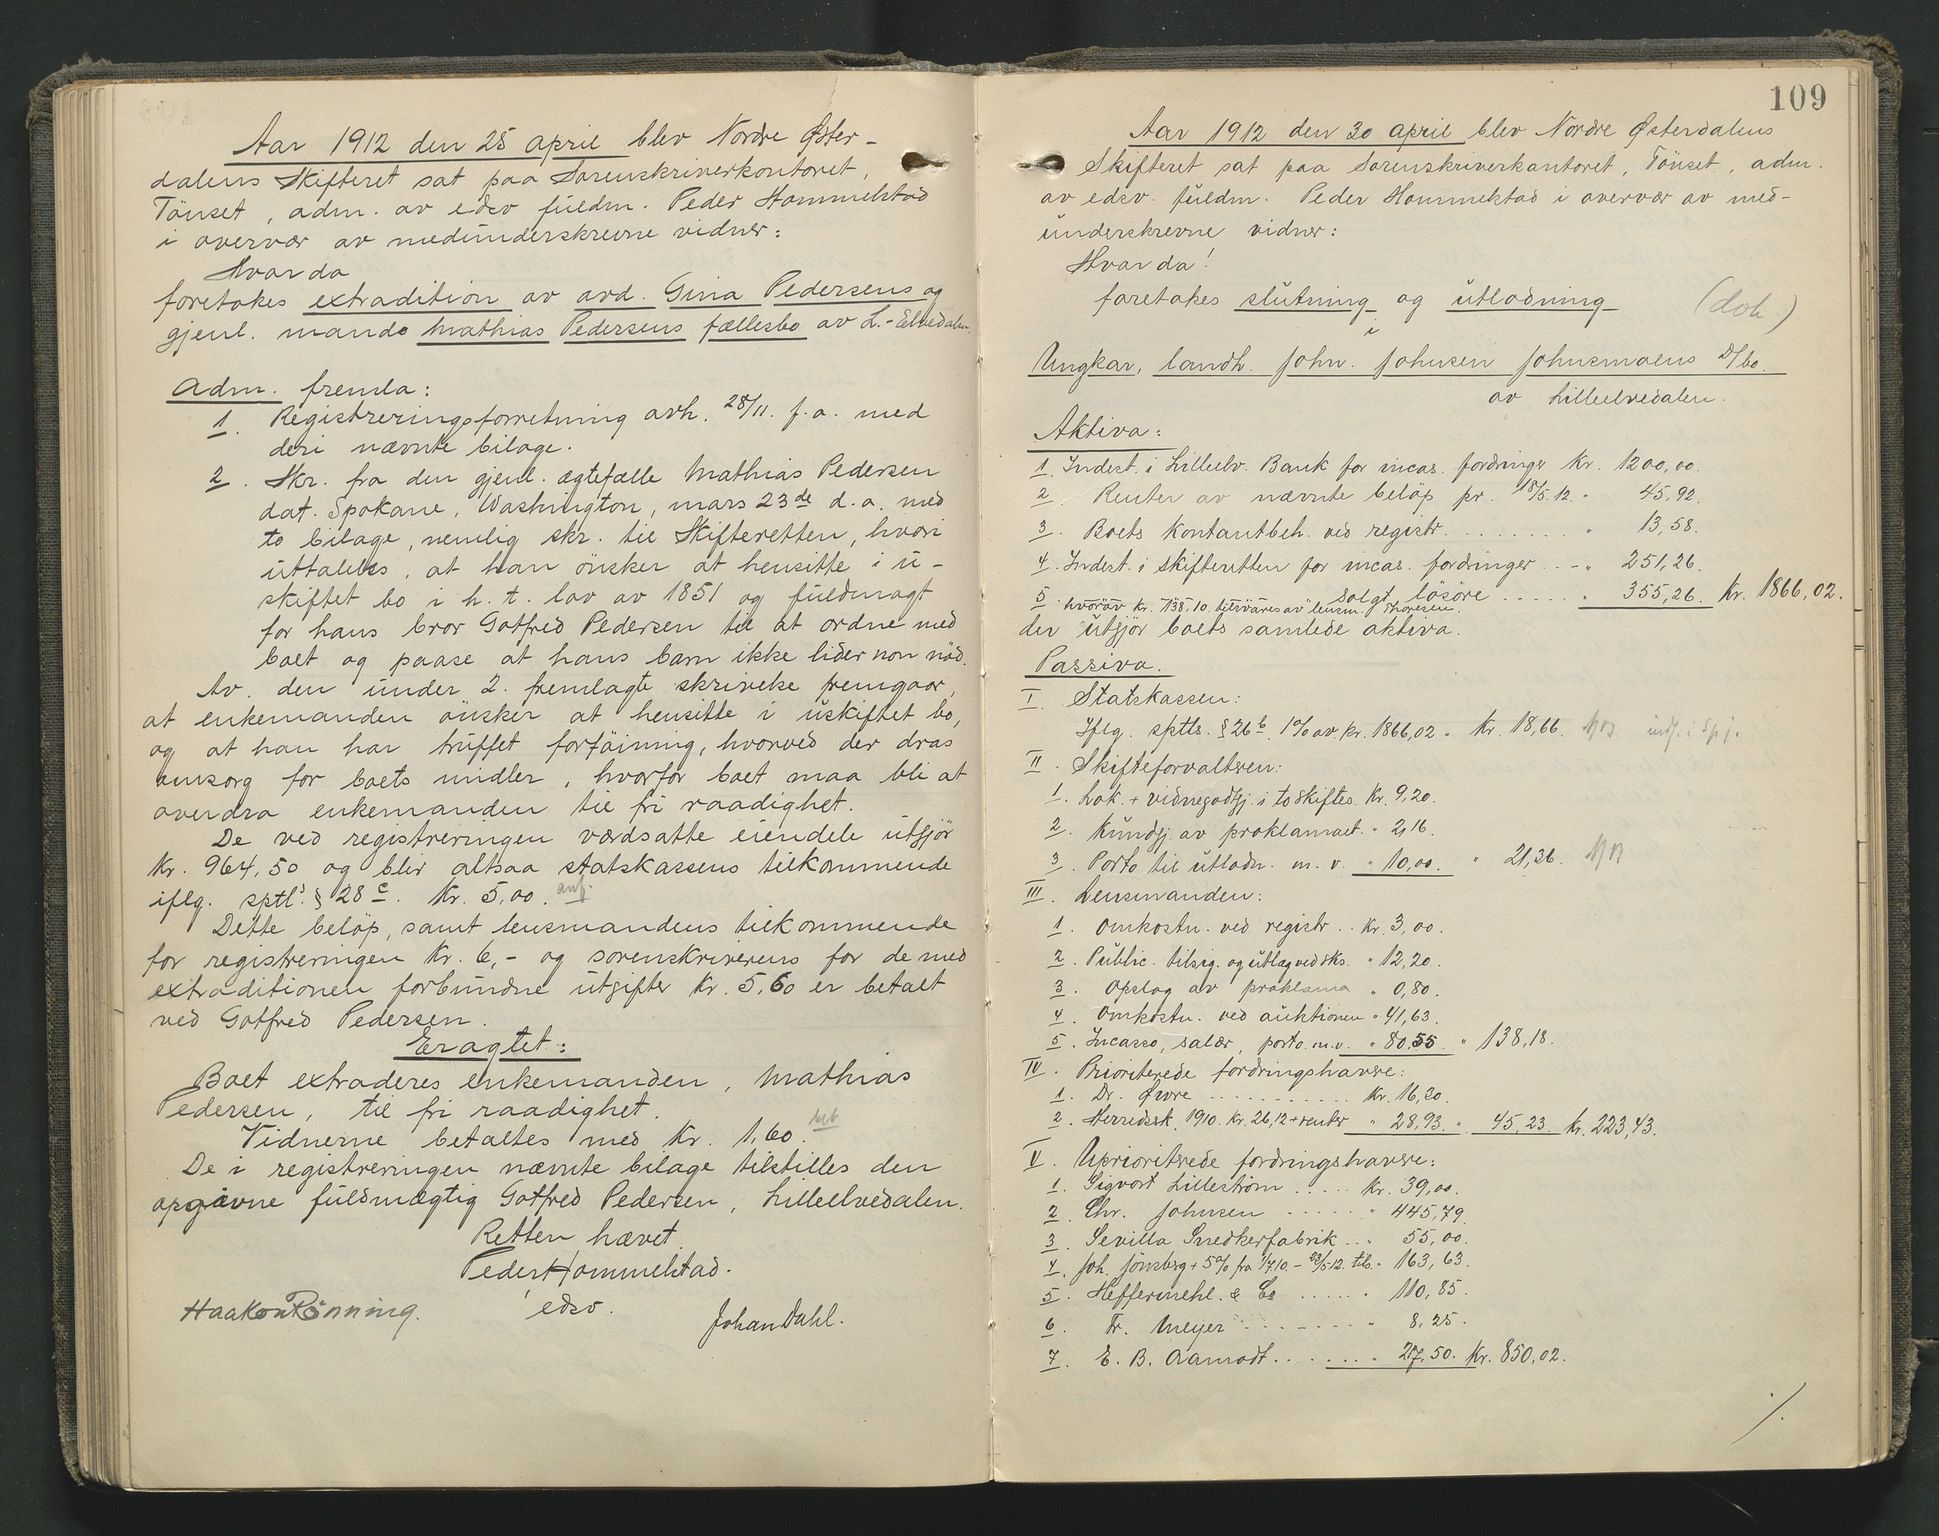 Aar 1912 den 25 april blev Nordre Øster-
dalens Skifteret sat paa Sorenskriverkontoret,
Tönset, adm. av edsv fuldm. Peder Hommelstad
i overvær av medunderskrevne vidner:
Hvor da
foretokes extradition av avd. Gina Pedersens og
gjenl. mands Mathias Pedersens fællesbo av L.-Elvedalen.
Adm. fremla:
1. Registreringsforretning avh. 28/11. f. a. med
deri nævnte bilage.
2. Skr. fra den gjenl. ægtefælle Mathias Pedersen
dat. Spokane, Washington, mars 23de d. a. med
to bilage, nemlig skr. til Skifteretten, hvori
uttales, at han önsker at hensitte i u-
skiftet bo i h. t. lov av 1851 og fuldmagt
for hans bror Gotfred Pedersen til at ordne med
boet og paase at hans barn ikke lider non nöd.
Av den under 2. fremlagte skrivelse fremgaar,
at enkemanden önsker at hensitte i uskiftet bo,
og at han har truffet forföining, hvorved der dras
omsorg for boets midler, hvorfor boet maa bli at
overdra enkemanden til fri raadighet.
De ved registreringen værdsatte eiendele utgjör
kr. 964,50 og blir altsaa statskassens tilkommende
iflg. sptl. § 28 c. Kr. 5,00. anf.
Dette belöp, samt lensmandens tilkommende
for registreringen kr. 6,- og sorenskriverens for de med
extraditionen forbundne utgifter kr. 5,60 er betalt
ved Gotfred Pedersen.
Eragtet:
Boet extraderes enkemanden, Mathias
Pedersen, til fri raadighet.
Vidnerne betaltes med kr. 1,60.
De i registreringen nævnte bilage tilstilles den
opgivne fuldmægtig Gotfred Pedersen, Lilleelvedalen.
Retten hævet.
Peder Hommelstad.
edsv.
Haakon Rönning.
Johan Dahl.
109
Aar 1912 den 30 april blev Nordre Østerdalens
Skifteret sat paa Sorenskriverkontoret, Tönset, adm.
av edsv. fuldm. Peder Hommelstad i overvær av med-
underskrevne vidner:
Hvor da!
foretokes slutning og utlodning
i
Ungkar, landh. John. Johnsen Johnsmoens D/bo.
av Lilleelvedalen.
Aktiva:
1. Indest. i Lilleelv. Bank for incas. fordringer kr. 1200,00.
2. Renter av nævnte belöp pr. 18/5.12. " 45,92.
3. Boets kontantbeh. ved registr. " 13,58.
4. Indest. i skifteretten for incas. fordringer " 251,26.
5. Solgt lösöre " 355,26. Kr. 1866,02.
hvorav kr. 138,10 tilsvares av lensm. Thoresen.
der utgjör boets samlede aktiva.
Passiva.
I. Statskassen:
Iflg. sptls. § 26 b. 1% av kr. 1866,02 " Kr. 18,66.
II. Skifteforvalteren:
1. Lok. + vidnegodtgj. i to skiftes. Kr. 9,20.
2. Kundgj. av proklamaet. " 2,16.
3. Porto til utlodn. m. v. " 10,00. " 21,36.
III. Lensmanden:
1. Omkostn. ved registr. . kr. 3,00.
2. Public. tilsig. og utlæg ved sks. " 12,20.
3. Opslag av proklama " 0,80.
4. Omkostn. ved auktionen " 41,63.
5. Incasso, salær, porto. m. v. " 80,55. " 138,18.
IV. Prioriterede fordringshavere:
1. Dr. Øvre kr. 16,30.
2. Herredssk. 1910. kr. 26,12 + renter " 28,93. " 45,23. Kr. 223,43.
V. Uprioriterede fordringshavere:
1. Sigvart Lilleström kr. 39,00.
2. Chr. Johnsen " 445,79.
3. Sevilla Snedkerfabrik " 55,00.
4. Joh. Jönsberg + 5% fra 1/7.10 - 23/5.12. tils. " 163,63
5. Heffermehl. & Co " 110,85.
6. Fr. Meyer " 8,25.
7. E. B. Aamodt " 27,50. Kr. 850,02.